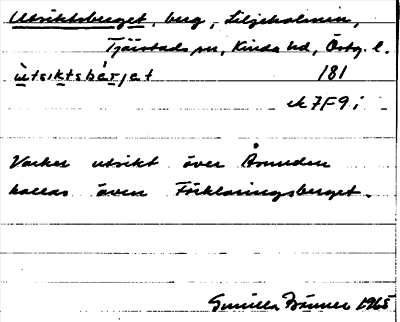 Utsiktsberget, berg, Liljeholmen,
Tjärstads sn, Kinda hd, Östg. l.
ùtsiktsbærjet 181
ek 7F9i
Vacker utsikt över Åsunden
kallas även Förklaringsberget.
Gunilla 1965